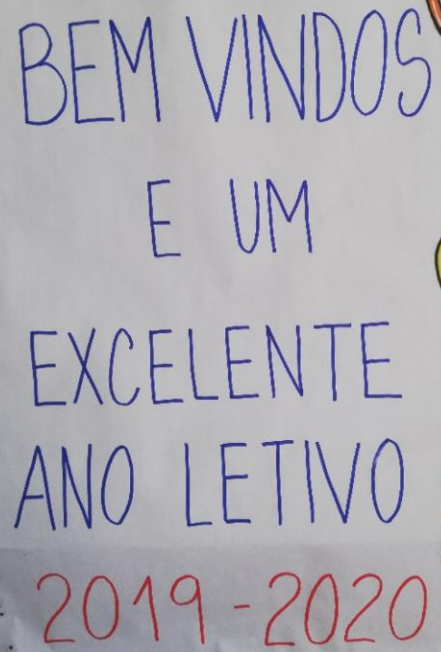 BEM VINDOS
E UM
EXCELENTE
ANO LETIVO
2019-2020